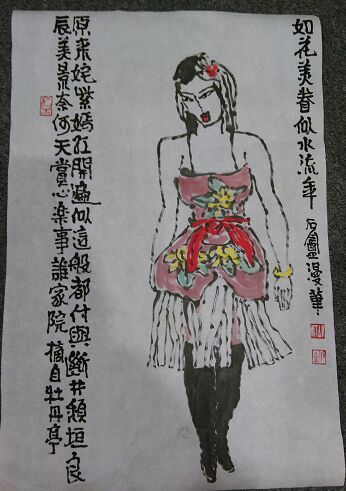 如花美眷似水流年
石漫
原来姹紫嫣红開遍似這般都付與斷井頹垣良
辰美景奈何天賞心樂事誰家院 摘自牡丹亭